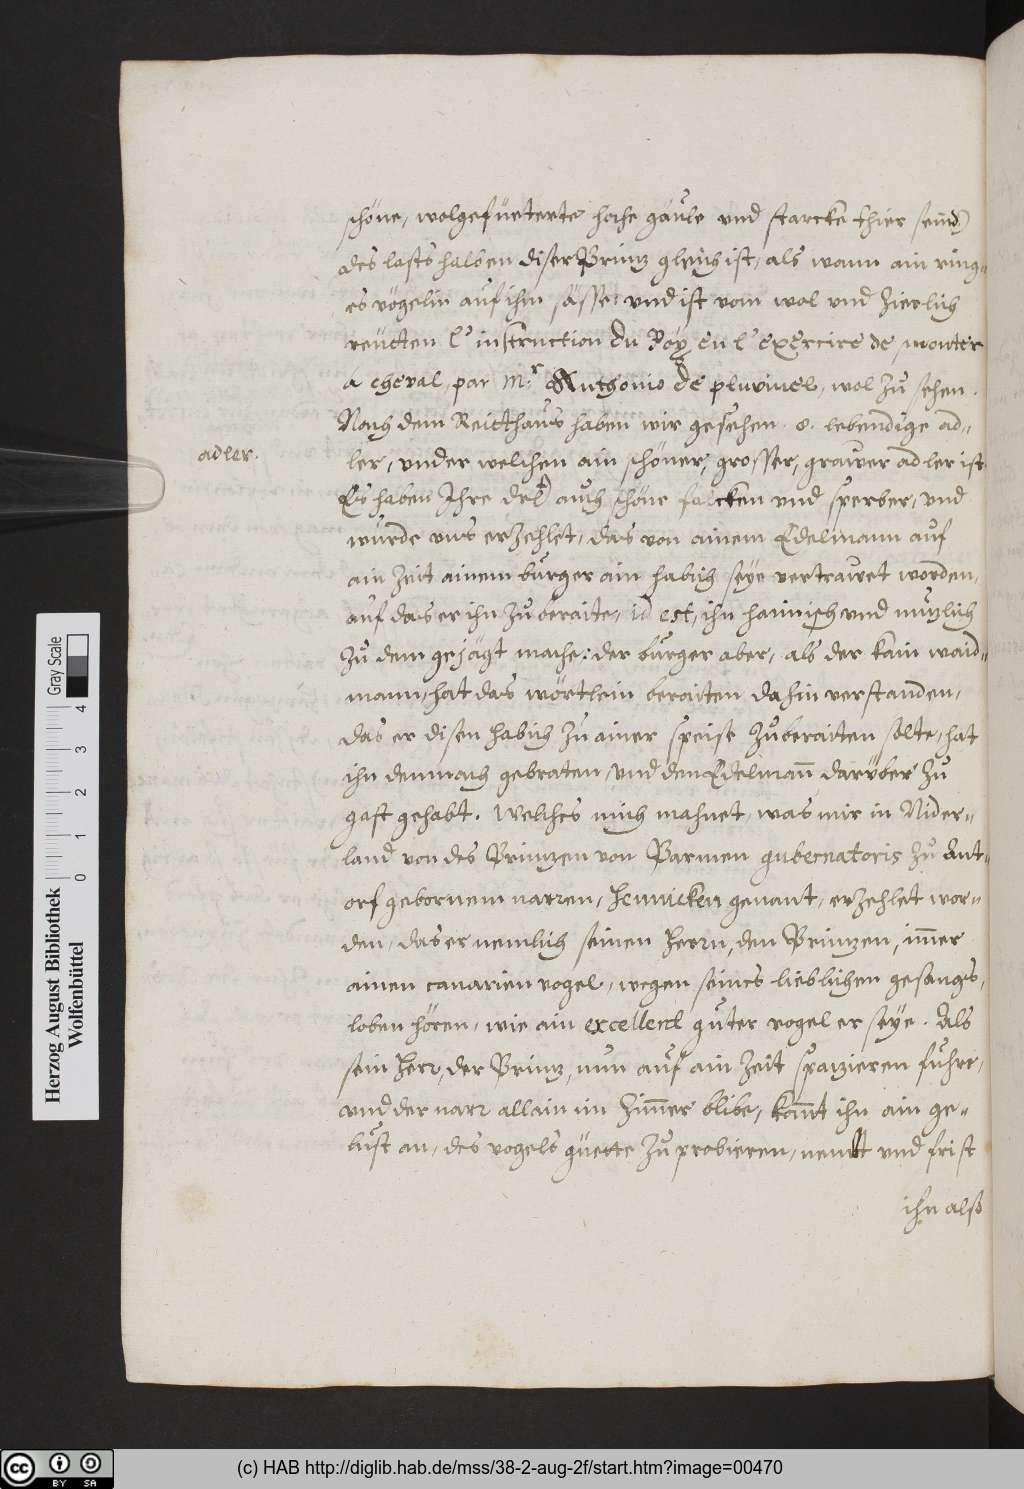 schöne, wolgefüeterte hohe gäule vnd starcke thier seind)
des lasts halben diser Prinz gleich ist, als wann ain ring=
es vögelin auf ihm sässe: vnd ist vom wol vnd zierlich
reutten l'instruction du Roy en l'exercire de monter
a cheval, par M.r Anthonio de pluvinel, wol zu sehen.
Nach dem Reitthaus haben wir gesehen .8. lebendige ad=
adler.
ler, vnder welchen ain schöner, grosser, grawer adler ist.
Es haben Ihre drl) auch schöne falcken vnd sperber, vnd
wurde vns erzehlet, das von ainem Edelmann auf
ain zeit ainem burger ain habich seye vertrawet worden,
auf das er ihn zu beraite, id est, ihn haimisch vnd nutzlich
zu dem gejägt mache: der burger aber, als der kain waid=
mann, hat das wörtlein beraiten dahin verstanden,
das er disen habich zu ainer speise zuberaiten solte, hat
ihn demnach gebraten, vnd den Edelmañ darüber zu
gast gehabt. Welches mich mahnet, was mir in Nider=
land von des Prinzen von Parmen gubernatoris zu Ant=
orf gebornem narren, Hennicken genant, erzehlet wor=
den, das er nemlich seinen Herrn, den Prinzen, im̃er
ainen canarien vogel, wegen seines lieblichen gesangs,
loben hören, wie ain excellent guter vogel er seye. Als
sein Herr, der Prinz, nun auf ain zeit spazieren fuhre,
vnd der narr allain im zim̃er blibe, kom̃t ihn ain ge=
lust an, des vogels güette zu probieren, nemt vnd frist
ihn also
Herzog August Bibliothek
Wolfenbüttel
0 1 2 3 4
Gray Scale
cc BY SA
(c) HAB http://diglib.hab.de/mss/38-2-aug-2f/start.htm?image=00470